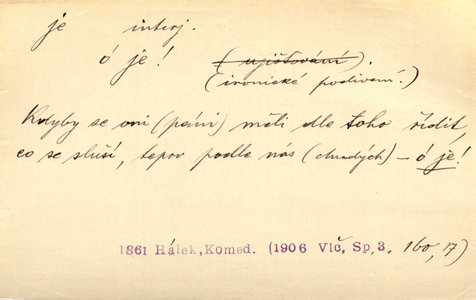 je interj.
ó je! (ujišťování).
(ironické podivení.)
Kdyby se oni (páni) měli dle toho řídit,
co se sluší, teprv podle nás (chudých) – ó je!
1861 Hálek, Komed. (1906 Vlč, Sp. 3, 160, 17)